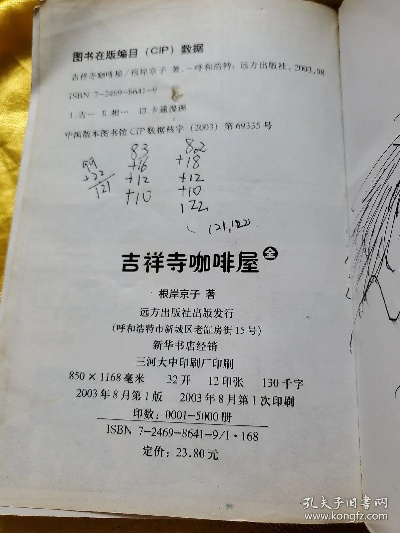 图书在版编目(CIP)数据
吉祥寺咖啡屋/根岸京子 著.-呼和浩特:远方出版社,2003.08
ISBN 7-2469-8641-9
Ⅰ.吉… Ⅱ.根… Ⅲ.卡通漫画
中国版本图书馆CIP数据核字(2003)第69335号
99
+22
121
83
+16
+12
+10
82
+18
+12
+10
122
(21,122)
吉祥寺咖啡屋 全
根岸京子 著
远方出版社出版发行
(呼和浩特市新城区老缸房街15号)
新华书店经销
三河大中印刷厂印刷
850×1168毫米 32开 12印张 130千字
2003年8月第1版 2003年8月第1次印刷
印数:0001-5000册
ISBN 7-2469-8641-9/I·168
定价:23.80元
孔夫子旧书网
www.kongfz.com